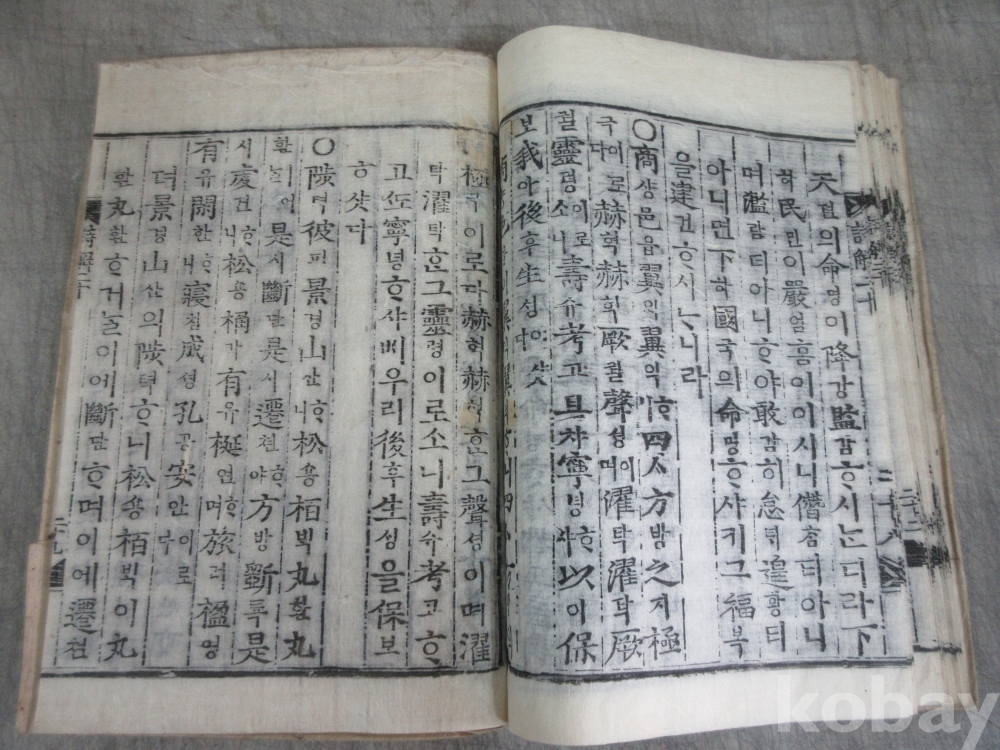 詩解二十
二十八
天텬의命명이降강監감ᄒᆞ시ᄂᆞᆫ디라下
하民민이嚴엄흠이이시니僭참티아니
며濫람티아니ᄒᆞ야敢감히怠ᄐᆡ遑황티
아니면下하國국의命명ᄒᆞ샤키그福복
을建건ᄒᆞ시ᄂᆞ니라
○商샹邑읍翼익翼익ᄒᆞ니四ᄉᆞ方방之지極
극이로다赫혁赫혁厥궐聲셩이며濯탁濯탁厥
궐靈령이로소니壽슈考고且챠寧녕ᄒᆞ샤以이保
보我아後후生ᄉᆡᆼ이샷다
極극이로다赫혁赫혁ᄒᆞᆫ그聲셩이며濯
탁濯탁ᄒᆞᆫ그靈령이로소니壽슈考고ᄒᆞ
고ᄯᅩ寧녕ᄒᆞ샤ᄡᅥ우리後후生ᄉᆡᆼ을保보
ᄒᆞ샷다
○陟텩彼피景경山산ᄒᆞ니松숑栢ᄇᆡᆨ丸환丸
환이어是시斷단是시遷쳔ᄒᆞ야方방斲착是
시虔건ᄒᆞ니松숑桷각有유梴연ᄒᆞ며旅려楹영
有유閑한ᄒᆞ니寢침成셩孔공安안이로다
뎌景경山산의陟텩ᄒᆞ니松숑栢ᄇᆡᆨ이丸
환丸환ᄒᆞ거ᄂᆞᆯ이에斷단ᄒᆞ며이에遷쳔
詩解二十
二十九
kobay